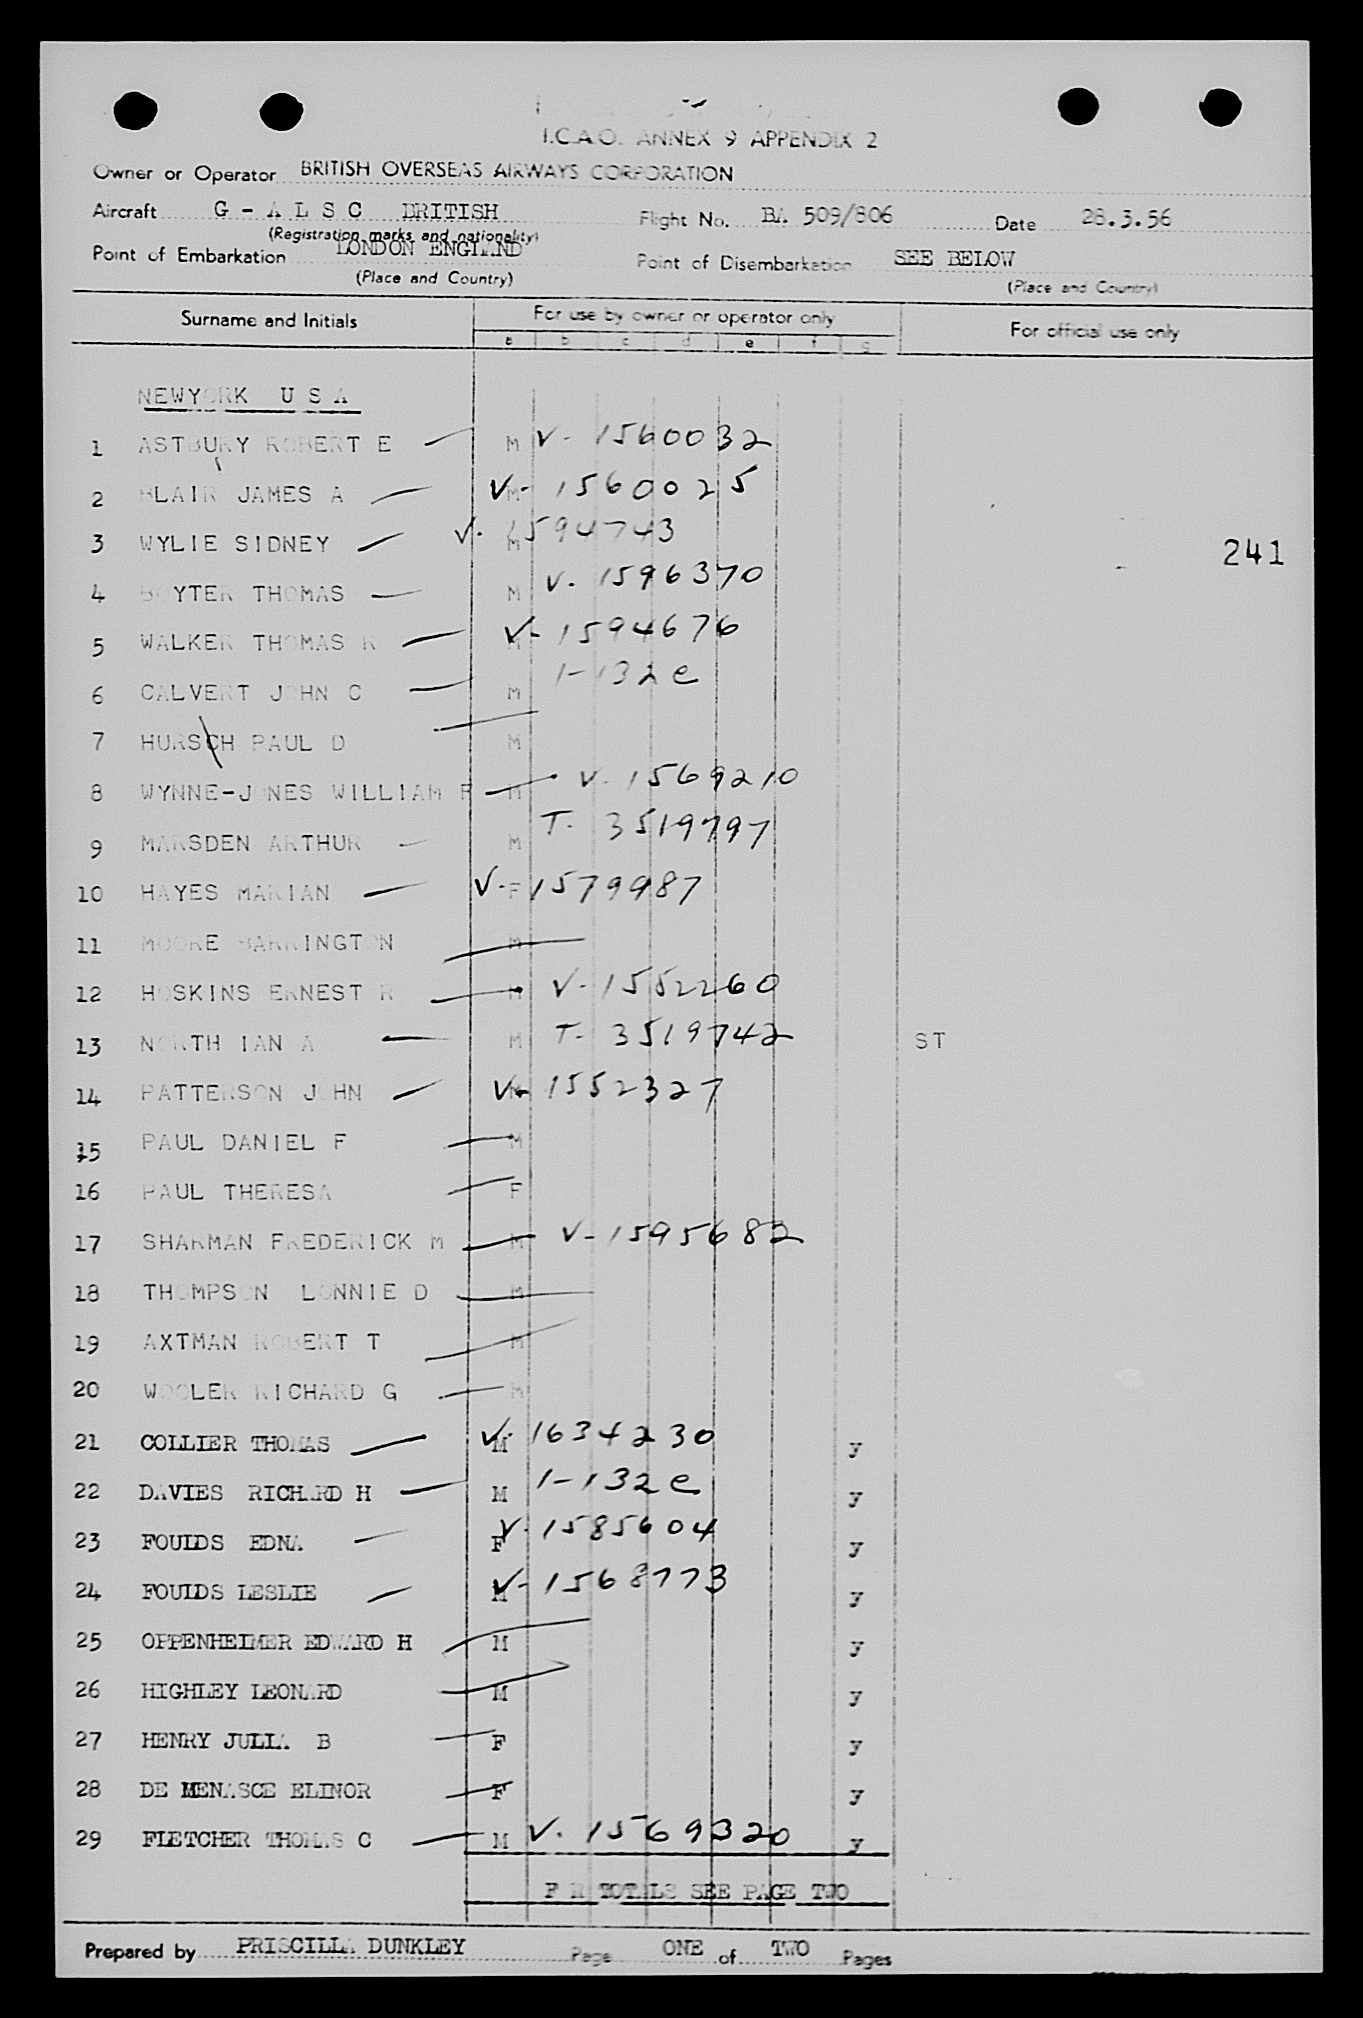 I.C.A.O. ANNEX 9 APPENDIX 2
Owner or Operator BRITISH OVERSEAS AIRWAYS CORPORATION
Aircraft G - A L S C BRITISH Flight No. BA 509/806 Date 28.3.56
(Registration marks and nationality)
Point of Embarkation LONDON ENGLAND Point of Disembarkation SEE BELOW
(Place and Country) (Place and Country)
Surname and Initials For use by owner or operator only For official use only
a b c d e f g
NEWYORK U S A
1 ASTBURY ROBERT E M V- 1560032
2 BLAIR JAMES A M V- 1560025
3 WYLIE SIDNEY M V- 1594743
241
4 BOYTER THOMAS M V- 1596370
5 WALKER THOMAS R M V- 1594676
6 CALVERT JOHN C M 1-132e
7 HURSCH PAUL D M
8 WYNNE-JONES WILLIAM F M V- 1569210
9 MARSDEN ARTHUR M T- 3519797
10 HAYES MARIAN F V- 1579987
11 MOORE BARRINGTON M
12 HOSKINS ERNEST R M V- 1552260
13 NORTH IAN A M T- 3519742 ST
14 PATTERSON JOHN M V- 1552327
15 PAUL DANIEL F M
16 PAUL THERESA F
17 SHARMAN FREDERICK M M V- 1595682
18 THOMPSON LONNIE D M
19 AXTMAN ROBERT T M
20 WOOLER RICHARD G M
21 COLLIER THOMAS M V- 1634230 y
22 DAVIES RICHARD H M 1-132e y
23 FOULDS EDNA F V- 1585604 y
24 FOULDS LESLIE M V- 1568773 y
25 OPPENHEIMER EDWARD H M y
26 HIGHLEY LEONARD M y
27 HENRY JULIA B F y
28 DE MENASCE ELINOR F y
29 FLETCHER THOMAS C M V- 1569320 y
F R TOTALS SEE PAGE TWO
Prepared by PRISCILLA DUNKLEY Page ONE of TWO Pages